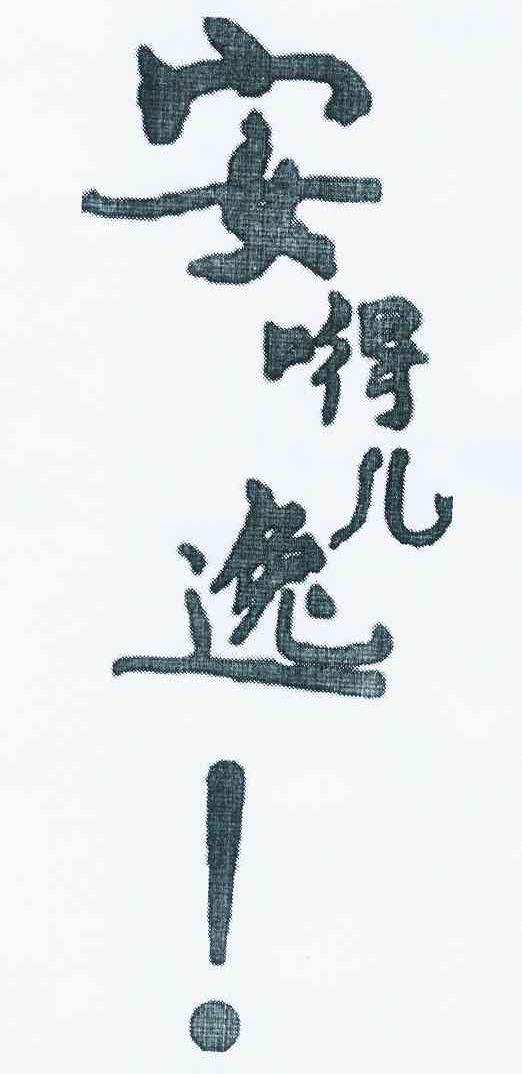 安嘚儿逸!